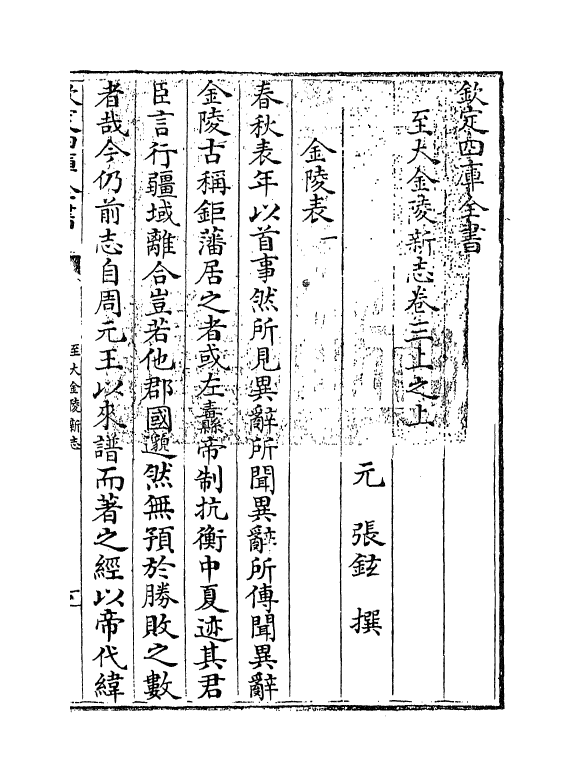 欽定四庫全書
至大金陵新志卷三上之上
元　張鉉　撰
金陵表一
春秋表年以首事然所見異辭所聞異辭所傳聞異辭
金陵古稱鉅藩居之者或左纛帝制抗衡中夏迹其君
臣言行疆域離合豈若他郡國邈然無預於勝敗之數
者哉今仍前志自周元王以來譜而著之經以帝代緯
欽定四庫全書
至大金陵新志